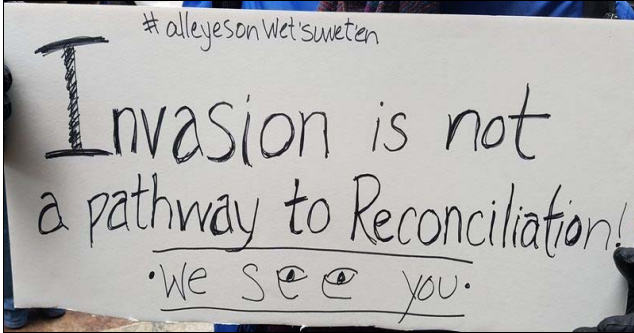 #alleyesonWet'suwet'en
Invasion is not
a pathway to Reconciliation!
·We see you·